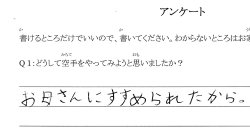 アンケート
書けるところだけでいいので、書いてください。わからないところはお
Q1:どうして空手をやってみようと思いましたか?
お母さんにすすめられたから。